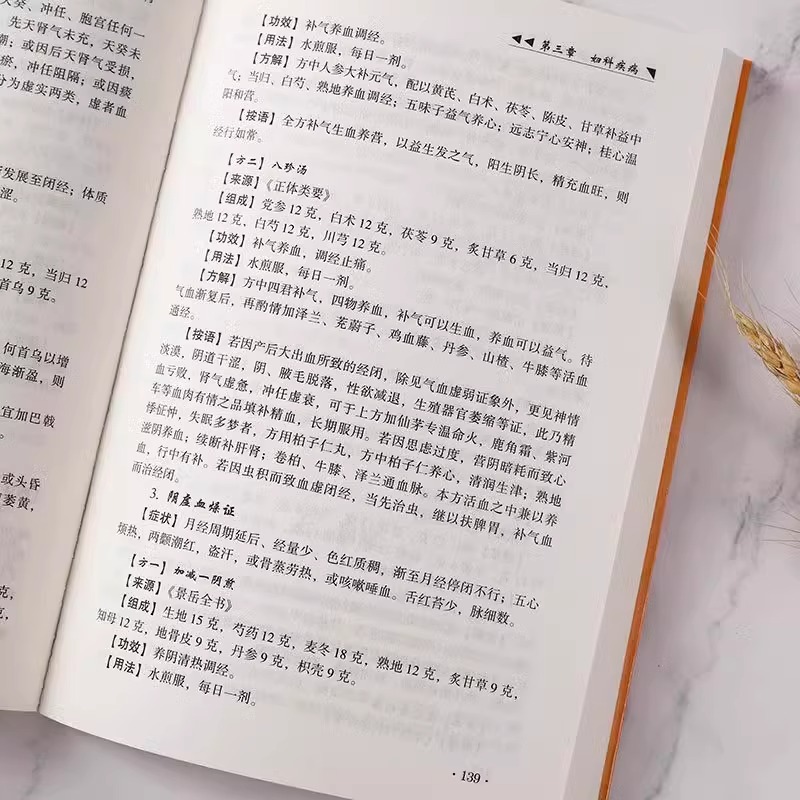 癸、冲任、胞宫任何一
先天肾气未充，天癸未
潮；或因后天肾气受损，
瘀，冲任阻隔；或因痰
分为虚实两类，虚者血
发展至闭经；体质
涩。
12 克，当归 12
首乌 9 克。
何首乌以增
海渐盈，则
宜加巴戟
或头昏
萎黄，
克，
克。
第三章 妇科疾病
【功效】补气养血调经。
【用法】水煎服，每日一剂。
【方解】方中人参大补元气，配以黄芪、白术、茯苓、陈皮、甘草补益中
气；当归、白芍、熟地养血调经；五味子益气养心；远志宁心安神；桂心温
阳和营。
【按语】全方补气生血养营，以益生发之气，阳生阴长，精充血旺，则
经行如常。
【方二】八珍汤
【来源】《正体类要》
【组成】党参 12 克，白术 12 克，茯苓 9 克，炙甘草 6 克，当归 12 克，
熟地 12 克，白芍 12 克，川芎 12 克。
【功效】补气养血，调经止痛。
【用法】水煎服，每日一剂。
【方解】方中四君补气，四物养血，补气可以生血，养血可以益气。待
气血渐复后，再酌情加泽兰、茺蔚子、鸡血藤、丹参、山楂、牛膝等活血
通经。
【按语】若因产后大出血所致的经闭，除见气血虚弱证象外，更见神情
淡漠，阴道干涩，阴、腋毛脱落，性欲减退，生殖器官萎缩等证，此乃精
血亏败，肾气虚惫，冲任虚衰，可于上方加仙茅专温命火，鹿角霜、紫河
车等血肉有情之品填补精血，长期服用。若因思虑过度，营阴暗耗而致心
悸怔忡，失眠多梦者，方用柏子仁丸，方中柏子仁养心，清润生津；熟地
滋阴养血；续断补肝肾；卷柏、牛膝、泽兰通血脉。本方活血之中兼以养
血，行中有补。若因虫积而致血虚闭经，当先治虫，继以扶脾胃，补气血
而治经闭。
3. 阴虚血燥证
【症状】月经周期延后、经量少、色红质稠，渐至月经停闭不行；五心
烦热，两颧潮红，盗汗，或骨蒸劳热，或咳嗽唾血。舌红苔少，脉细数。
【方一】加减一阴煎
【来源】《景岳全书》
【组成】生地 15 克，芍药 12 克，麦冬 18 克，熟地 12 克，炙甘草 9 克，
知母 12 克，地骨皮 9 克，丹参 9 克，枳壳 9 克。
【功效】养阴清热调经。
【用法】水煎服，每日一剂。
·139·